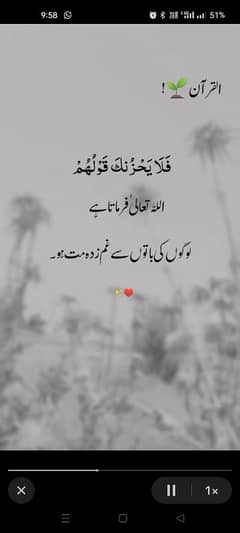 9:58 51%
القرآن 🌱 !
فَلَا يَحْزُنكَ قَوْلُهُمْ
اللہ تعالیٰ فرماتا ہے
لوگوں کی باتوں سے غم زدہ مت ہو۔
1×